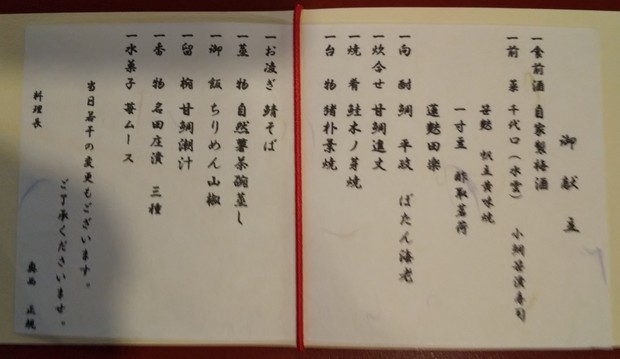 御献立
一食前酒 自家製梅酒
一前菜 千代口(水雲) 小鯛笹漬寿司
笹麩 帆立黄味焼
一寸豆 酢取茗荷
蓮麩田楽
一向 酎 鯛 平政 ぼたん海老
一炊合せ 甘鯛進丈
一焼肴 鮭木ノ芽焼
一台物 猪朴葉焼
一お凌ぎ 鯖そば
一蒸物 自然薯茶碗蒸し
一御飯 ちりめん山椒
一留椀 甘鯛潮汁
一香物 名田庄漬 三種
一水菓子 苺ムース
当日若干の変更もございます。
ご了承くださいます。
料理長
正